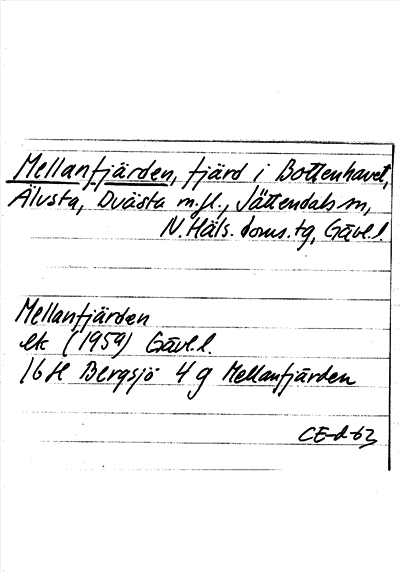 Mellanfjärden, fjärd i Bottenhavet,
Älvsta, Dvästa m.fl., Jättendals sn,
N. Häls. doms. tg, Gävl.l.
Mellanfjärden
ek (1959) Gävl.l.
16H Bergsjö 4 g Mellanfjärden
CE-d-63